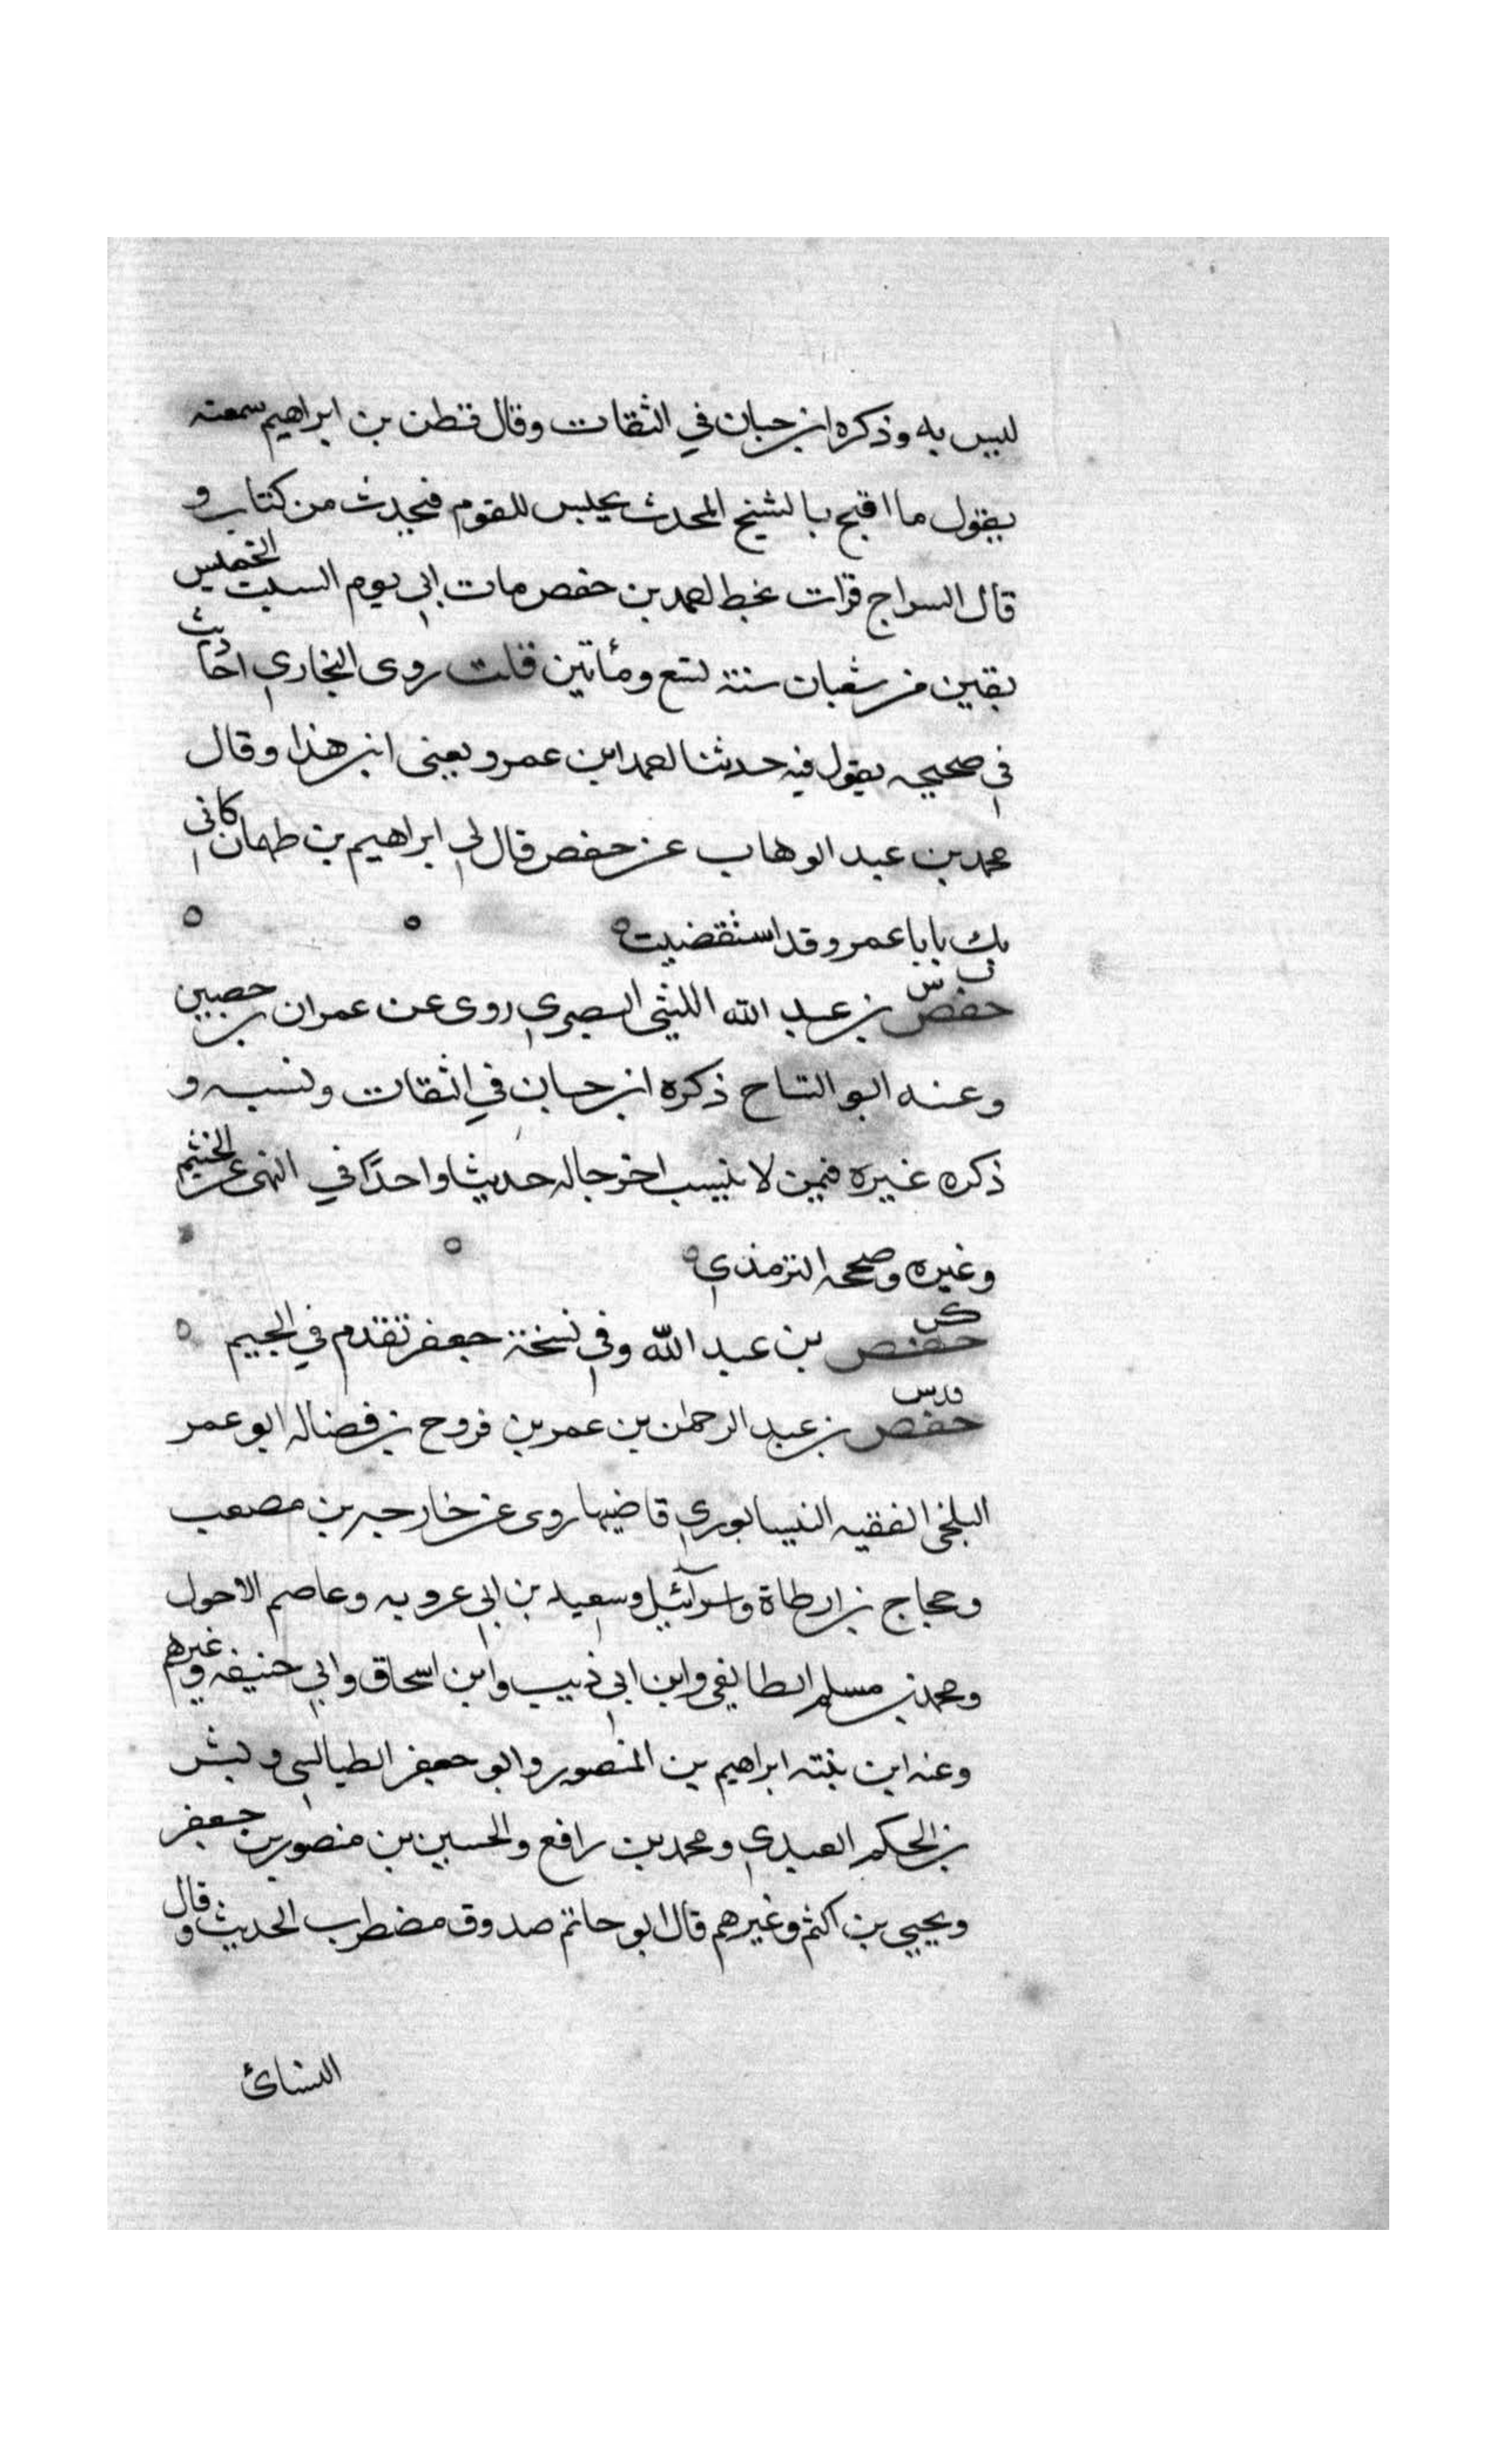 ليس به وذكره ابن حبان في الثقات وقال قطن بن ابراهيم سمعته
يقول ما اقبح بالشيخ المحدث يجلس للقوم فيحدث من كتاب و
قال السراج قرات بخط احمد بن حفص مات ابي يوم السبت الخمس
بقين من شعبان سنة تسع ومأتين قلت روى البخاري احاديث
في صحيحه يقول فيه حدثنا احمد ابن عمرو يعني ابن هذا وقال
محمد بن عبد الوهاب عن حفص قال لي ابراهيم بن طهمان كاني
بك يابا عمرو قد استقضيت
ت س
حفص بن عبد الله الليثي البصري روى عن عمران بن حصين
وعنه ابو التياح ذكره ابن حبان في الثقات ونسبه و
ذكره غيره فيمن لا ينسب اخرجا له حديثا واحدا في النهي عن الختم
وغيره وصححه الترمذي
كن
حفص بن عبد الله وفي نسخة جعفر تقدم في الجيم
حفص بن عبد الرحمن بن عمر بن فروخ بن فضاله ابو عمر
البلخي الفقيه النيسابوري قاضيها روى عن خارجه بن مصعب
وحجاج بن ارطاة واسرآئيل وسعيد بن ابي عروبه وعاصم الاحول
ومحمد بن مسلم الطايفي وابن ابي ذيب وابن اسحاق وابي حنيفه وغيرهم
وعنه ابن بنته ابراهيم بن المنصور وابو جعفر الطيالسي وبشر
بن الحكم العبدي ومحمد بن رافع والحسين بن منصور بن جعفر
ويحيي بن اكثم وغيرهم قال ابو حاتم صدوق مضطرب الحديث وقال
النسائ